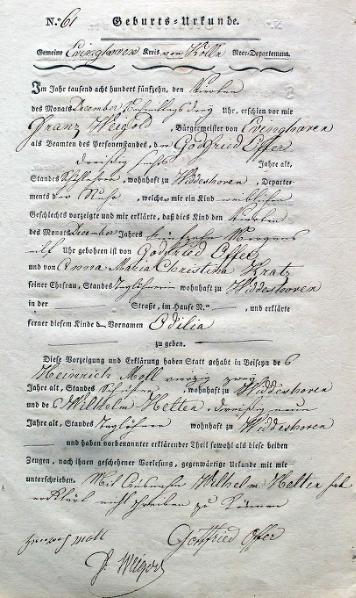 N: 61 Geburts-Urkunde.
Gemeine Evinghoven Kreis von Kölln Roer-Departement.
Im Jahr tausend acht hundert fünfzehn, den
des Monats December Nachmittags drey Uhr, erschien vor mir
Franz Weigold, Bürgermeister von Evinghoven
als Beamten des Personenstandes, den Godfried Offer
dreißig sechs Jahre alt,
Standes , wohnhaft zu Widdeshoven, Departe-
ments der Ruhr, welcher mir ein Kind weiblichen
Geschlechts vorzeigte und mir erklärte, daß dies Kind den
des Monats December Jahres Morgens
elf Uhr gebohren ist von Godfried Offer
und von Anna Maria Christina Kratz
seiner Ehefrau, Standes Taglöhnerin wohnhaft zu Widdeshoven
in der Straße, im Hause N.° , und erklärte
ferner diesem Kinde den Vornamen Odilia
zu geben.
Diese Vorzeigung und Erklärung haben Statt gehabt in Beiseyn des
Heinrich Moll vierzig zwey
Jahre alt, Standes , wohnhaft zu Widdeshoven
und des Wilhelm Hetten dreißig neun
Jahre alt, Standes Taglöhner wohnhaft zu Widdeshoven
und haben vorbenannter erklärender Theil sowohl als diese beiden
Zeugen, nach ihnen geschehener Vorlesung, gegenwärtige Urkunde mit mir
unterschrieben. Wilhelm Hetten hat
erklärt nicht schreiben zu können
Heinrich Moll Gottfried Offer
F. Weigold